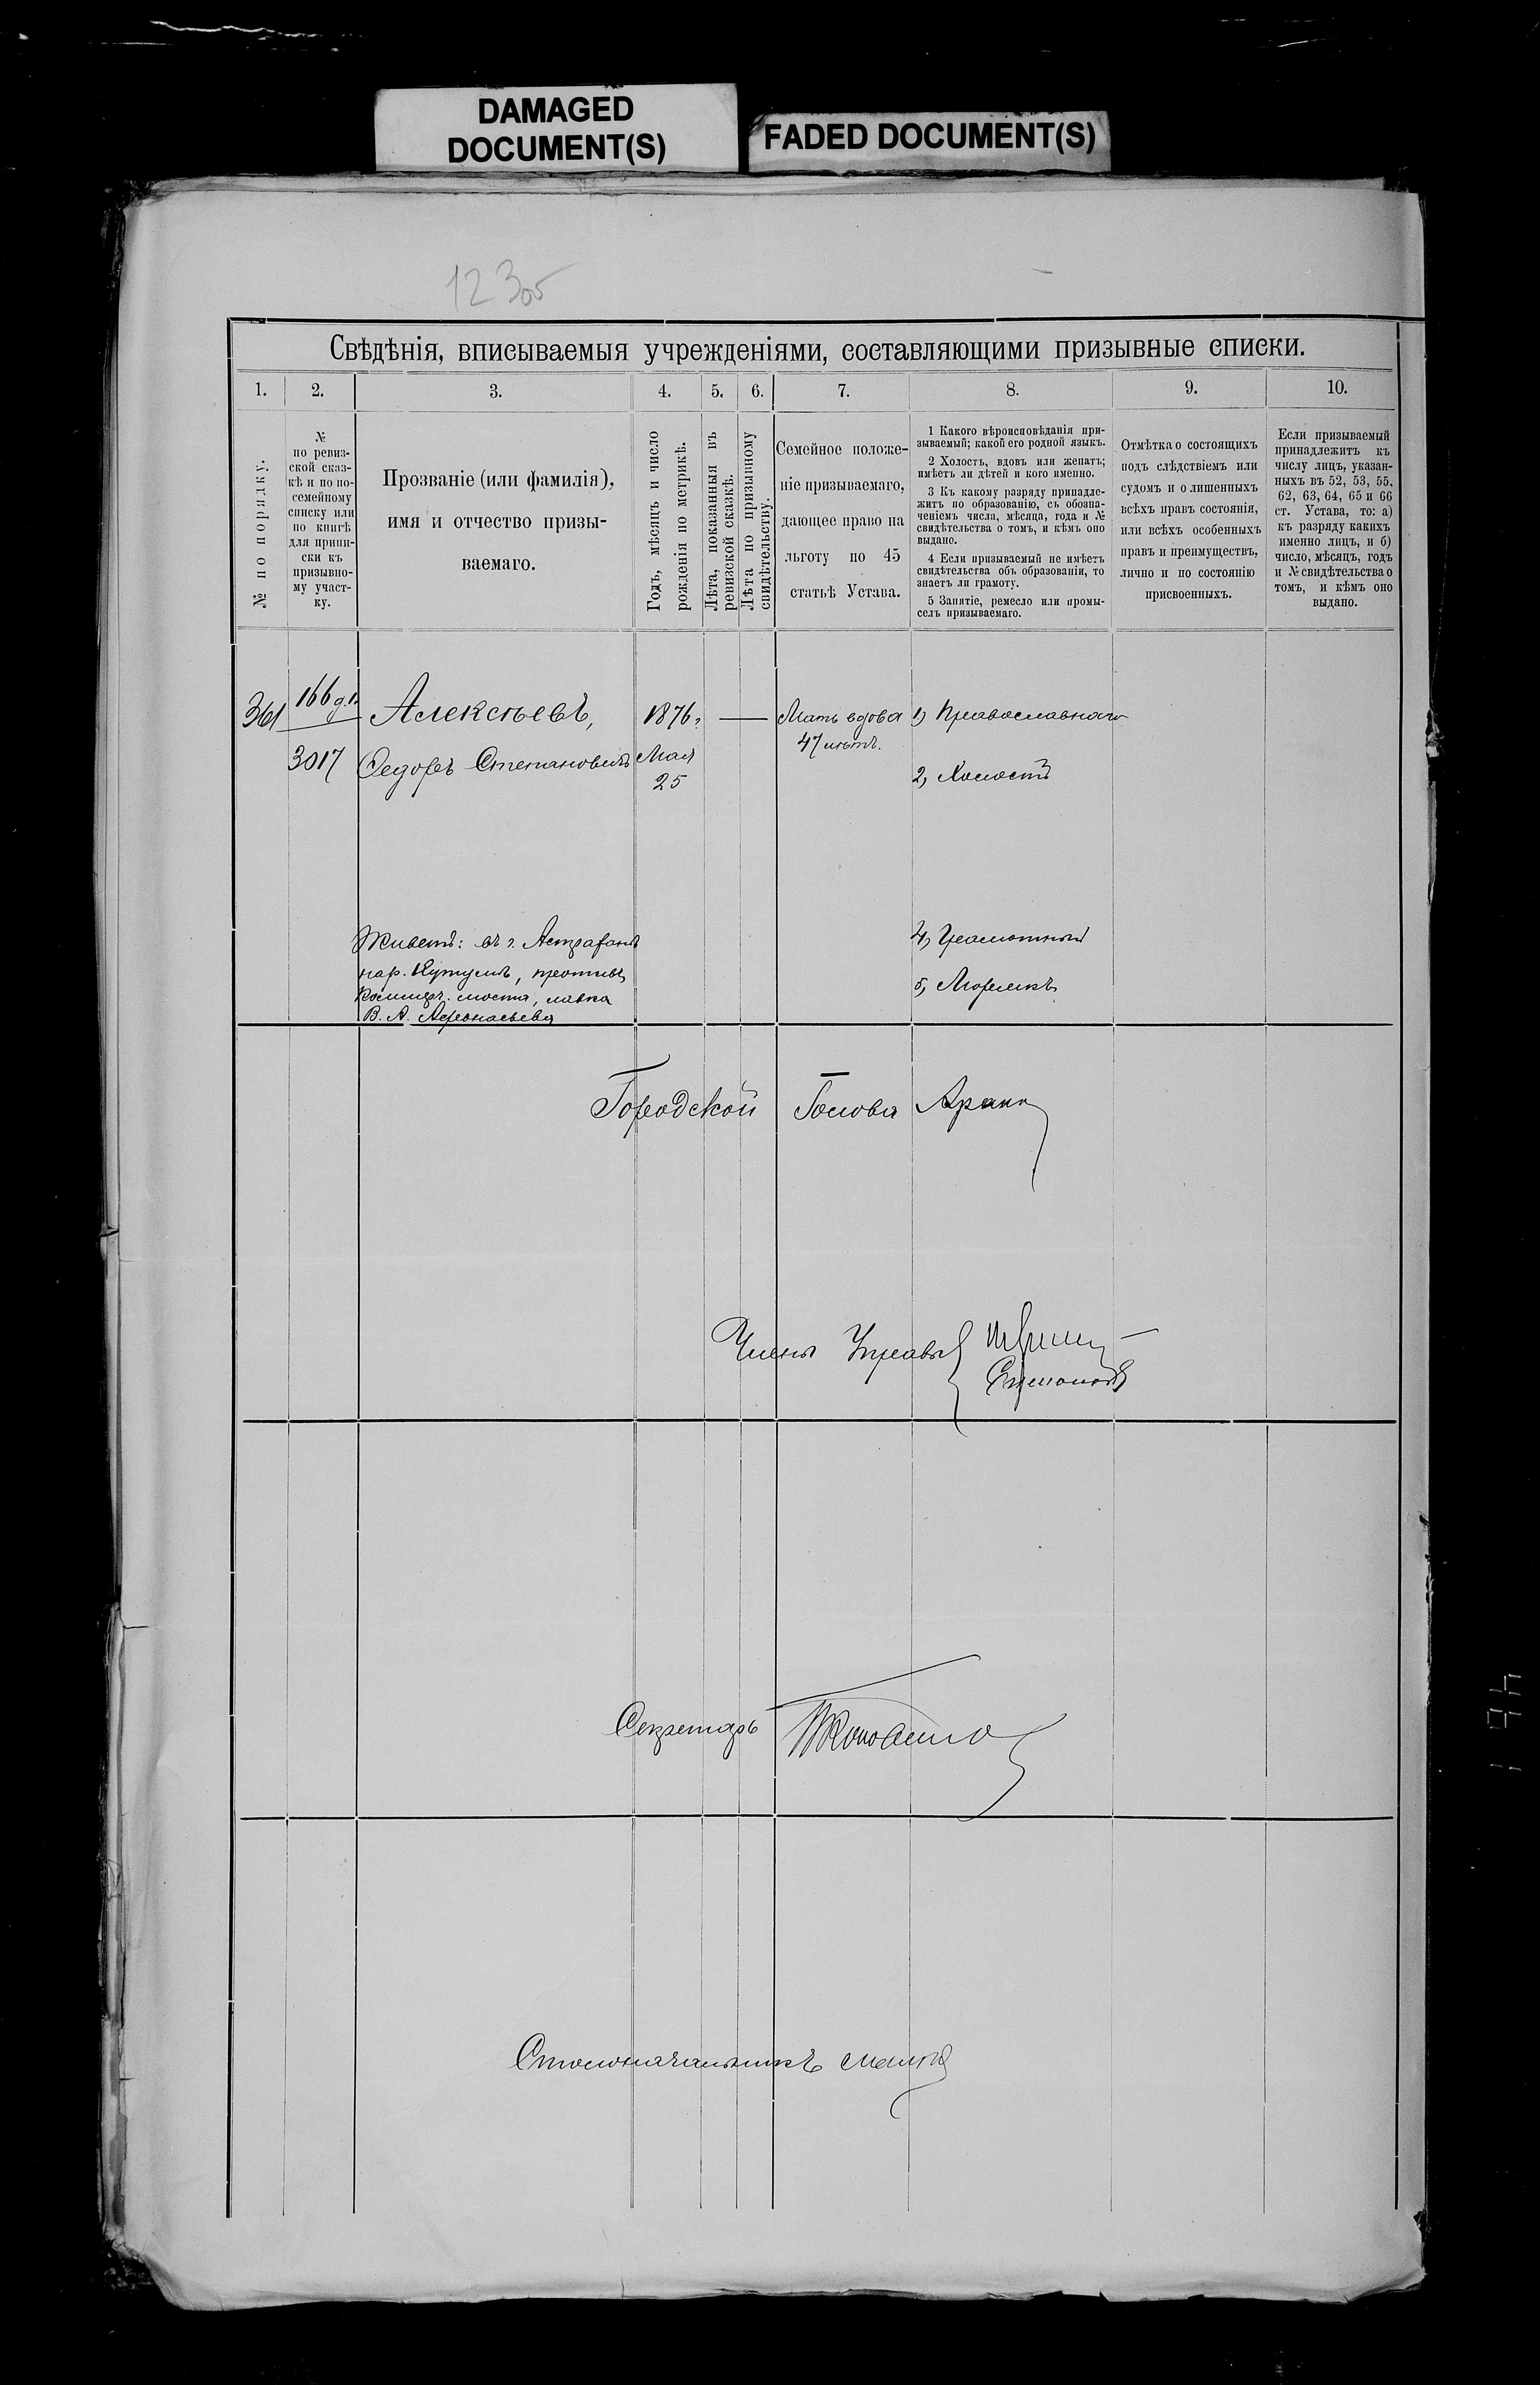 DAMAGED
DOCUMENT(S)
FADED DOCUMENT(S)
Свѣдѣнія, вписываемыя учрежденіями, составляющими призывные списки.
1. 2. 3. 4. 5. 6. 7. 8. 9. 10.
№ по порядку.
№
по ревиз-
ской сказ-
кѣ и по по-
семейному
списку или
по книгѣ
для припи-
ски къ
призывно-
му участ-
ку.
Прозваніе (или фамилія),
имя и отчество призы-
ваемаго.
Годъ, мѣсяцъ и число
рожденія по метрикѣ.
Лѣта, показанныя въ
ревизской сказкѣ.
Лѣта по призывному
свидѣтельству.
Семейное положе-
ніе призываемаго,
дающее право на
льготу по 45
статьѣ Устава.
1 Какого вѣроисповѣданія при-
зываемый; какой его родной языкъ.
2 Холостъ, вдовъ или женатъ;
имѣетъ ли дѣтей и кого именно.
3 Къ какому разряду принадле-
житъ по образованію, съ обозна-
ченіемъ числа, мѣсяца, года и №
свидѣтельства о томъ, и кѣмъ оно
выдано.
4 Если призываемый не имѣетъ
свидѣтельства объ образованіи, то
знаетъ ли грамоту.
5 Занятіе, ремесло или промы-
селъ призываемаго.
Отмѣтка о состоящихъ
подъ слѣдствіемъ или
судомъ и о лишенныхъ
всѣхъ правъ состоянія,
или всѣхъ особенныхъ
правъ и преимуществъ,
лично и по состоянію
присвоенныхъ.
Если призываемый
принадлежитъ къ
числу лицъ, указан-
ныхъ въ 52, 53, 55,
62, 63, 64, 65 и 66
ст. Устава, то: а)
къ разряду какихъ
именно лицъ, и б)
число, мѣсяцъ, годъ
и № свидѣтельства о
томъ, и кѣмъ оно
выдано.
361
166
3017
Алексѣевъ,
Федоръ Степановичъ
1876 г.
Мая
25
Мать вдова
47 лѣтъ.
1) Православнаго
2) Холостъ
Живетъ: въ г. Астрахани
нар. Кутума, противъ
Коммерч. моста, лавка
В. А. Афонасьева
4) Грамотный
5)
Городской Голова
Члены Управы
Секретарь
Столоначальникъ